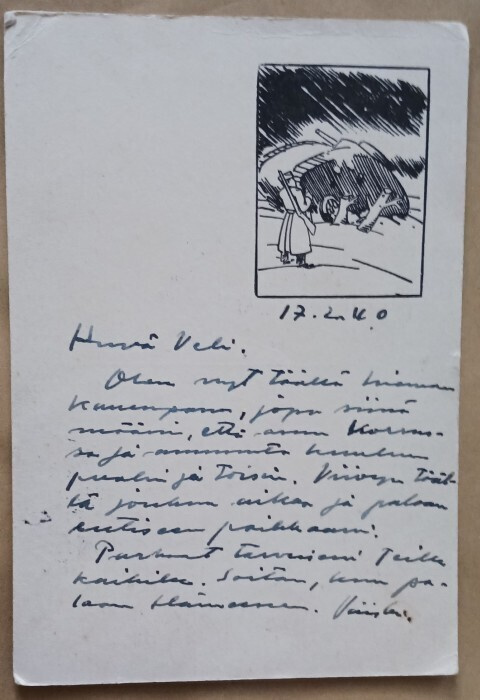 17.2.40
Hyvä Veli.
Olen nyt täällä hieman
kauempana, jopa siinä
määrin, että asun korsus-
sa ja ammunta kuuluu
puolin ja toisin. Viivyn tääl-
lä jonkun aikaa ja palaan
entiseen paikkaani.
Parhaat terveiseni Teille
kaikille. Soitan, kun pa-
laan Hämeeseen.